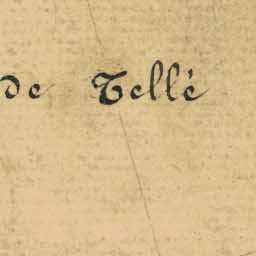 de Tellè